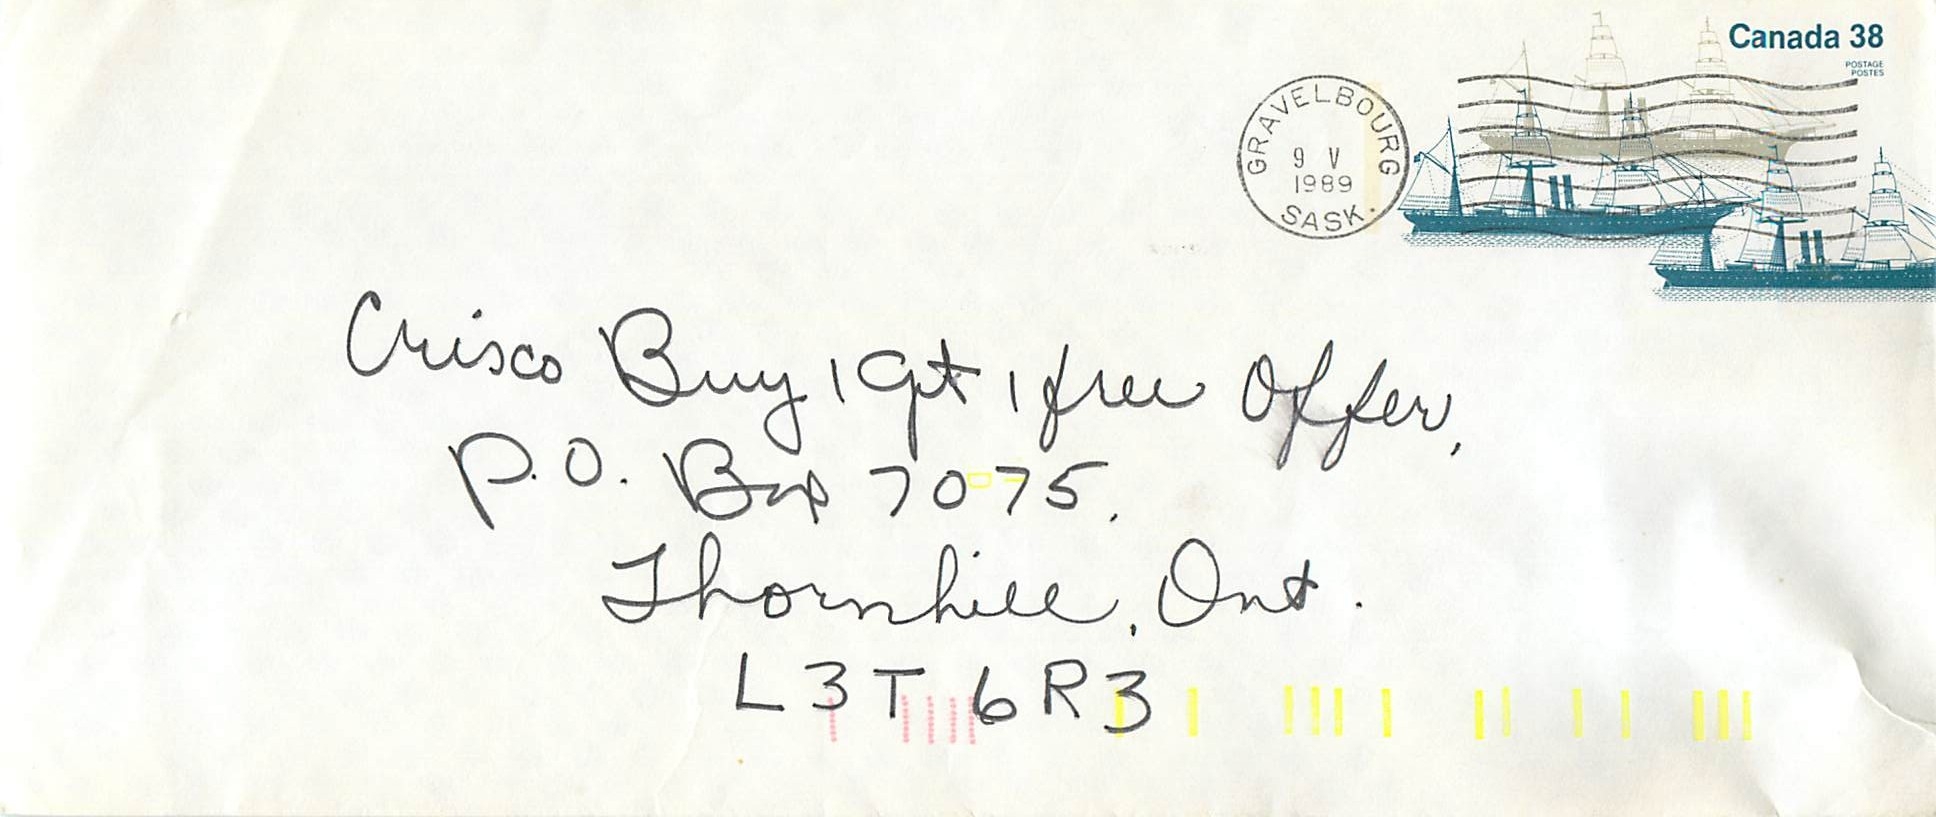 Canada 38
POSTAGE
POSTES
GRAVELBOURG
9 V
1989
SASK.
Crisco Buy 1 Get 1 free Offer,
P.O. Box 7075,
Thornhill, Ont.
L3T 6R3